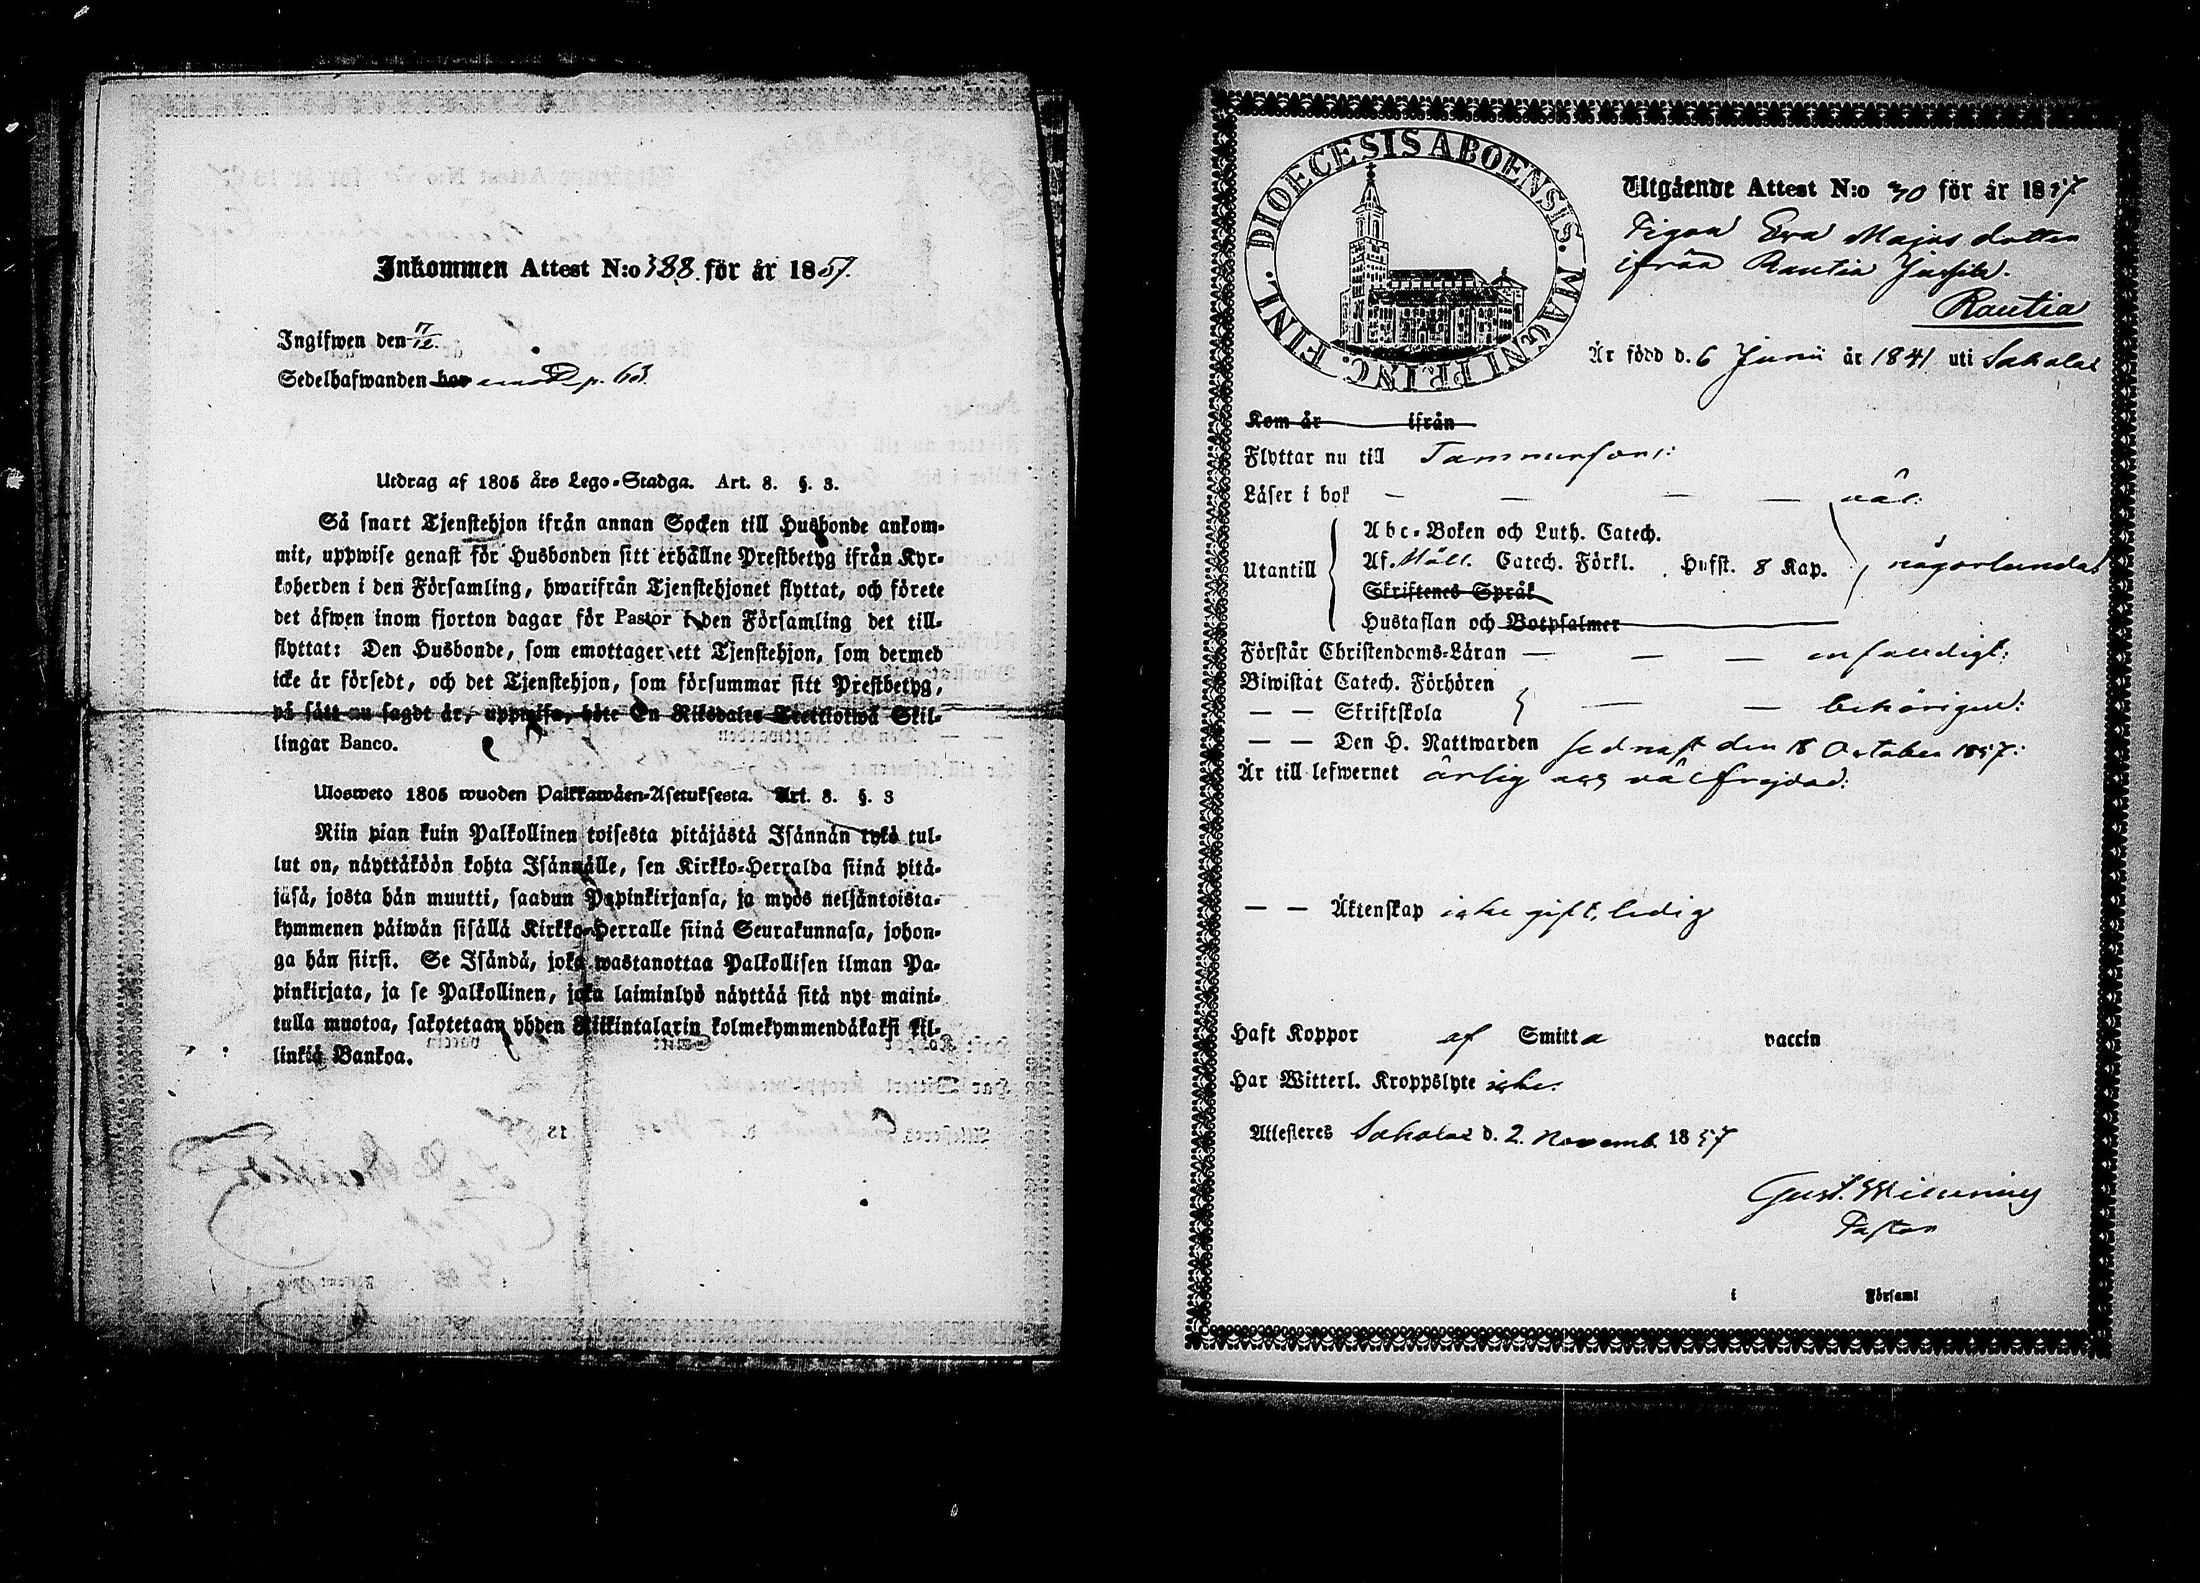 Inkommen Attest N:o 388 för år 1857.
Ingifwen den 17/12.
Sedelhafwanden har p. 63.
Utdrag af 1805 års Lego-Stadga. Art. 8. §. 3.
Så snart Tjenstehjon ifrån annan Socken till Husbonde ankom-
mit, uppwise genast för Husbonden sitt erhållne Prestbetyg ifrån Kyr-
koherden i den Församling, hwarifrån Tjenstehjonet flyttat, och förete
det äfwen inom fjorton dagar för Pastor i den Församling det till-
flyttat: Den Husbonde, som emottager ett Tjenstehjon, som dermed
icke är försedt, och det Tjenstehjon, som försummar sitt Prestbetyg,
på sätt nu sagdt är, uppwisa, böte En Riksdaler Trettiotwå Skil-
lingar Banco.
Ulosweto 1805 wuoden Palkkawäen-Asetuksesta. Art. 8. §. 3
Niin pian kuin Palkollinen toisesta pitäjästä Isännän tykö tul-
lut on, näyttäköön kohta Isännälle, sen Kirkko-Herralda siinä pitä-
jäsä, josta hän muutti, saadun Papinkirjansa, ja myös neljäntoista-
kymmenen päiwän sisällä Kirkko-Herralle siinä Seurakunnasa, johon-
ga hän siirsi. Se Isändä, joka wastanottaa Palkollisen ilman Pa-
pinkirjata, ja se Palkollinen, joka laiminlyö näyttää sitä nyt maini-
tulla muotoa, sakotetaan yhden Riikintalarin kolmekymmendäkaksi kil-
linkiä Bankoa.
DIOECESIS ABOENSIS. MAGNI PRINC. FINL.
Utgående Attest N:o 30 för år 1857
Pigan Eva Majas dotter
ifrån Rautia Jussila.
Rautia
Är född d. 6 Junii år 1841 uti Sahalax
Kom år ifrån
Flyttar nu till Tammerfors:
Läser i bok — — — — väl:
Abc-Boken och Luth. Catech.
Utantill Af. Möll. Catech. Förkl. Hufst. 8 Kap. någorlunda
Skriftenes Språk
Hustaflan och Botpsalmer
Förstår Christendoms-Läran — — — enfaldigt:
Biwistat Catech. Förhören
— — Skriftskola — — behörigen:
— — Den H. Nattwarden sednast den 18 October 1857:
Är till lefwernet ärlig och väl frejdad:
— — Äktenskap icke gift, ledig
Haft Koppor af Smitta vaccin
Har Witterl. Kroppslyte icke.
Attesteres Sahalax d. 2. Novemb. 1857
Gust. Winning
Pastor
i Församl